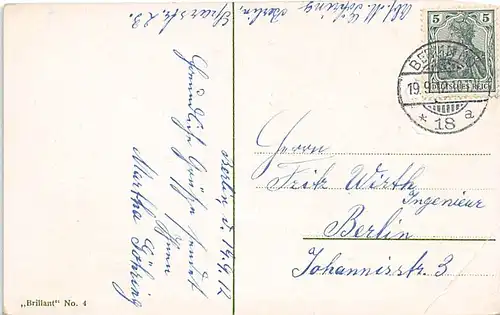 Abs. M. Göhring Berlin.
Berlin d. 19.9.12
Freundliche Grüße sendet
Ihnen
Martha Göhring
5 5
DEUTSCHES REICH
BERLIN
19.9.12
* 18 a
Herrn
Fritz Wirth
Ingenieur
Berlin
Johannisstr. 3
„Brillant" No. 4